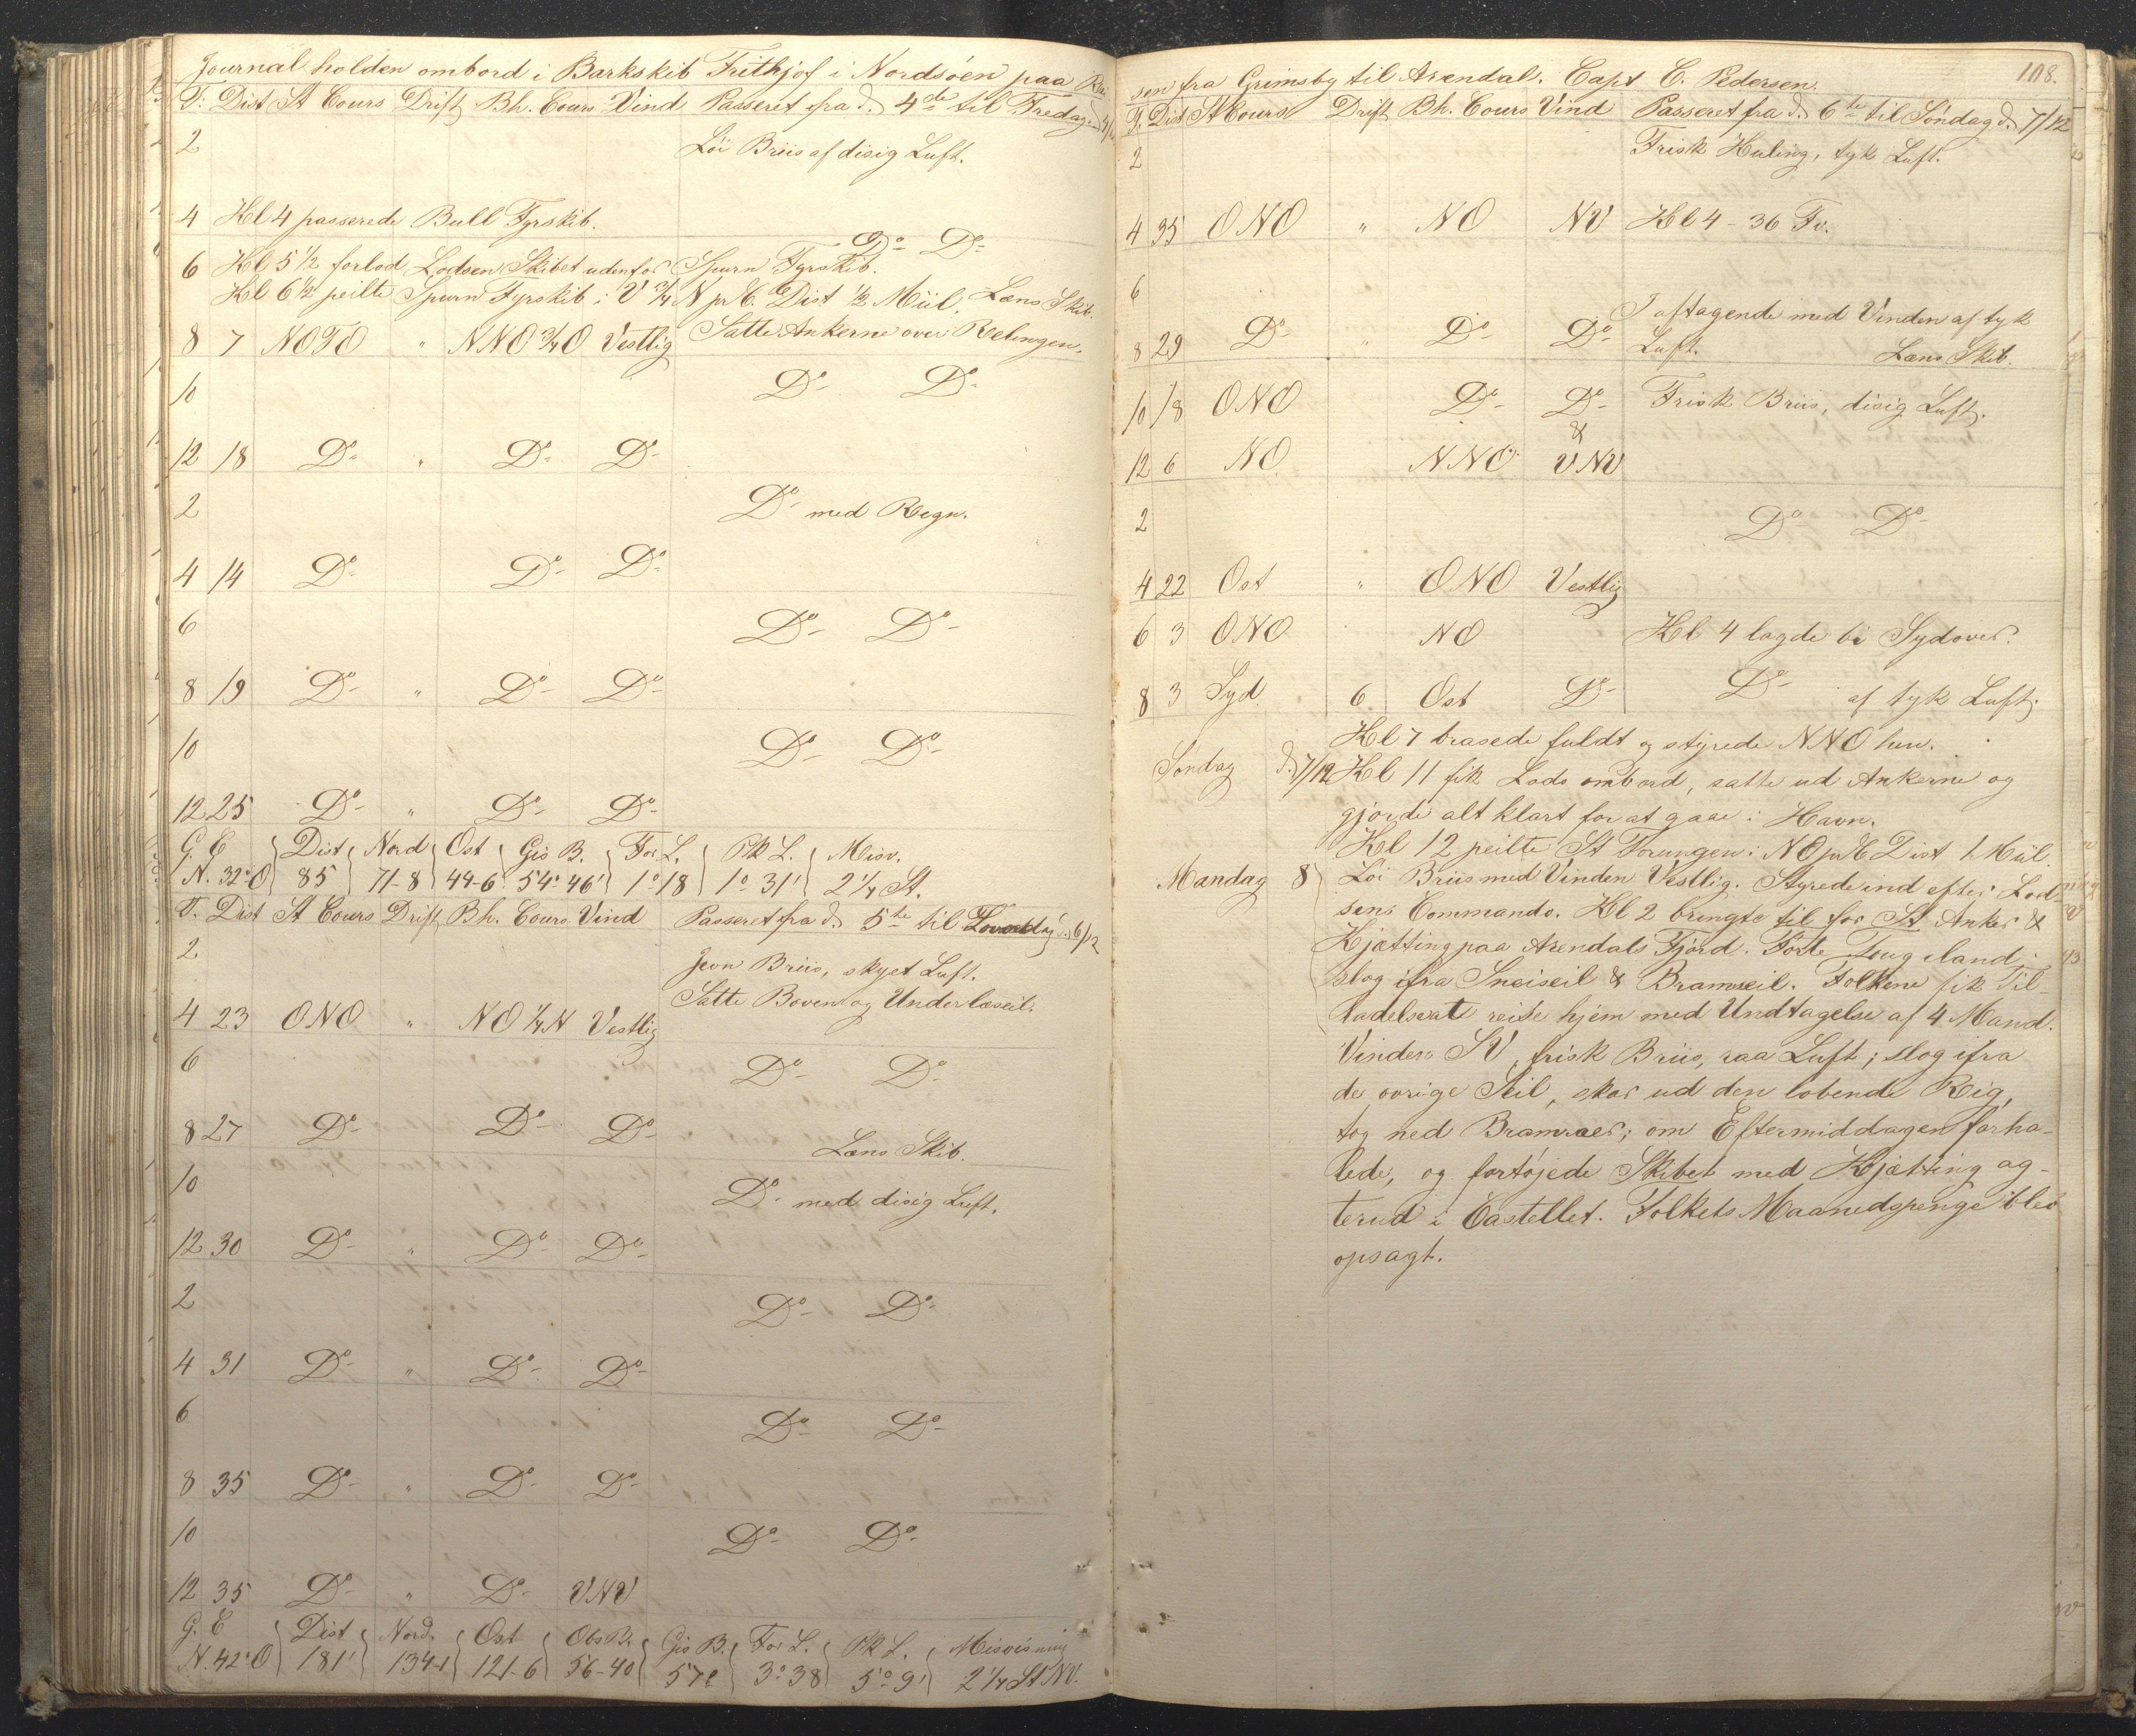 Journal holden ombord i Barkskib Frithjof i Nordsöen paa Rei
T. Dist St Cours Drift Bh. Cours Vind Passeret fra d. 4de til Fredag
2 Löi Briis af disig Luft.
4 Kl 4 passerede Bull Fyrskib.
Do Do
6 Kl 5 1/2 forlod Lodsen Skibet udenfor Spurn Fyrskib.
Kl 6 1/2 peilte Spurn Fyrskib i V 3/4 N pr C. Dist 1/2 Miil. Læns Skib.
8 7 NOTO " NNO 3/4 O Vestlig Satte Ankerne over Relingen.
10 Do Do
12 18 Do " Do Do
2 Do med Regn.
4 14 Do Do Do
6 Do Do
8 19 Do " Do Do
10 Do Do
12 25 Do " Do Do
G. C Dist Nord Ost Gis B. For L. Pk L. Misv.
N. 32° O 85 71-8 44-6 54° 46' 1° 18 1° 31' 2 1/4 St.
T. Dist St Cours Drift Bh. Cours Vind Passeret fra d. 5te til Loverdag 6/12
2 Jevn Briis, skyet Luft.
Satte Boven og Underlæseil.
4 23 ONO " NO 1/4 N Vestlig
6 Do Do
8 27 Do Do Do
Læns Skib.
10 Do med disig Luft.
12 30 Do " Do Do
2 Do Do
4 31 Do " Do Do
6 Do Do
8 35 Do " Do Do
10 Do Do
12 35 Do " Do VNV
G. C Dist Nord. Ost Obs B. Gis B. For L. Pk L. Misvisning
N. 42° O 181' 134-1 121-6 56-40 57° 3° 38 5° 9' 2 1/4 St NV.
108.
sen fra Grimsby til Arendal. Capt C. Pedersen.
T. Dist St Cours Drift Bh. Cours Vind Passeret fra d. 6te til Söndag d. 7/12
2 Frisk Kuling, tyk Luft.
4 35 ONO " NO NV Kl 4 - 36 Fv.
6
I aftagende med Vinden af tyk
8 29 Do " Do Do Luft. Læns Skib.
10 18 ONO Do Do Frisk Briis, disig Luft.
&
12 6 NO NNO VNV
2 Do Do
4 22 Ost " ONO Vestlig
6 3 ONO NO Kl 4 lagde bi Sydover.
8 3 Syd 6 Ost Do Do af tyk Luft.
Kl 7 brasede fuldt og styrede NNO hen.
Söndag d. 7/12 Kl 11 fik Lods ombord, satte ud Ankerne og
gjorde alt klart for at gaae i Havn.
Kl 12 peilte St Torungen i NO pr C Dist 1 Miil.
Mandag 8 Löi Briis med Vinden Vestlig. Styrede ind efter Lod-
sens Commando. Kl 2 bringte til for St Anker &
Kjætting paa Arendals Fjord. Förte Toug iland
slog ifra Sneiseil & Bramseil. Folkene fik Til-
ladelse at reise hjem med Undtagelse af 4 Mand.
Vinden SV, frisk Briis, raa Luft; slog ifra
de övrige Seil, skar ud den löbende Rig,
tog ned Bramraer; om Eftermiddagen forha-
lede, og fortöjede Skibet med Kjætting ag-
terud i Castellet. Folkets Maanedspenge blev
opsagt.